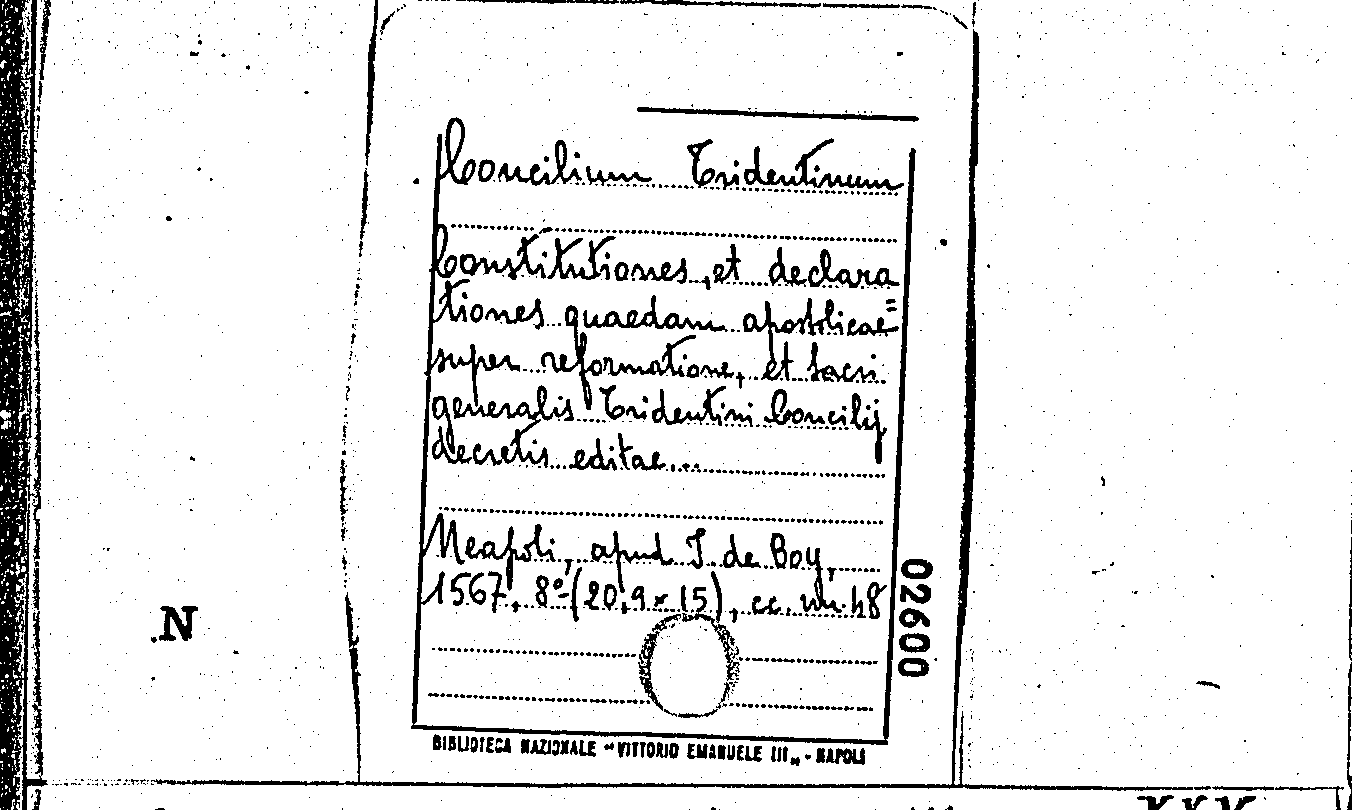 Concilium Tridentinum
Constitutiones, et declara=
tiones quaedam apostolicae
super reformatione, et sacri
generalis Tridentini Concilij
decretis editae...
Neapoli, apud J. de Boy,
1567, 8º (20,9 x 15), cc. nn. 48
02600
.N
BIBLIOTECA NAZIONALE "VITTORIO EMANUELE III" - NAPOLI